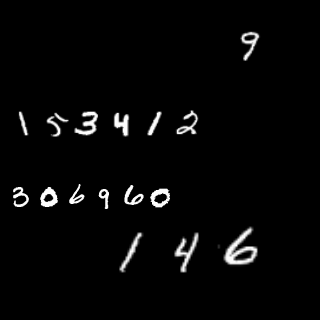 9
153412
306960
146